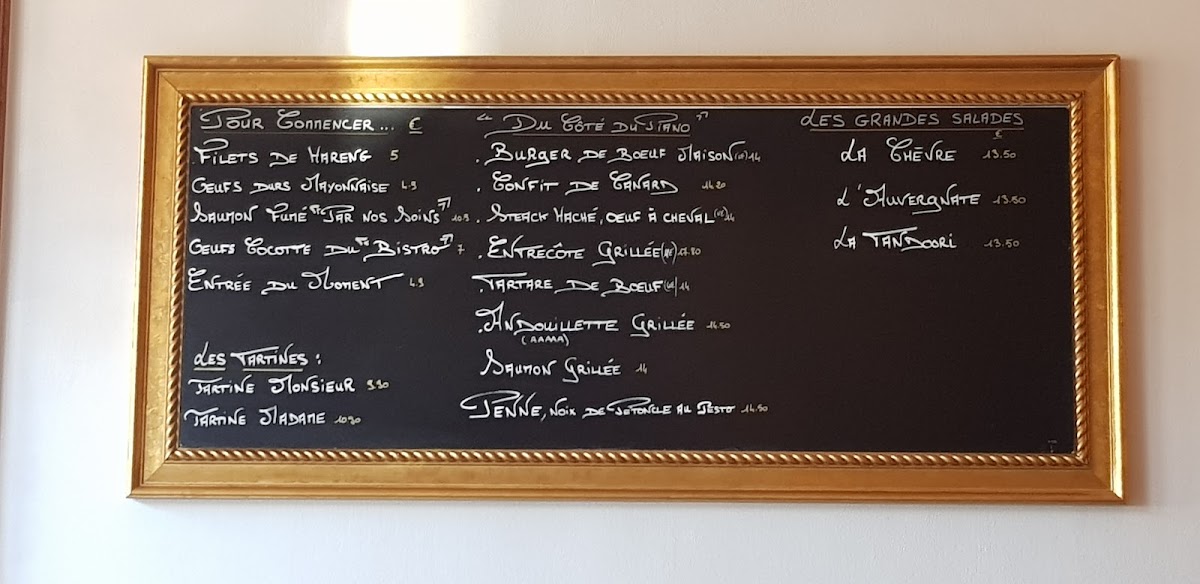 Pour Commencer... €
Filets de Hareng 5
Oeufs durs Mayonnaise 4.9
Saumon Fumé "Par nos Soins" 10.9
Oeufs Cocotte du "Bistro" 7
Entrée du Moment 4.9
Les Tartines :
Tartine Monsieur 9.90
Tartine Madame 10.90
"Du Côté du Piano"
. Burger de Boeuf Maison (UE) 14
. Confit de Canard 14.20
. Steack Haché, oeuf à cheval (UE) 14
. Entrecôte Grillée (UE) 17.80
. Tartare de Boeuf (UE) 14
. Andouillette Grillée 14.50
(AAAAA)
Saumon Grillée 14
Penne, noix de Petoncle au Pesto 14.50
Les Grandes Salades
€
La Chèvre 13.50
L'Auvergnate 13.50
La Tandoori 13.50